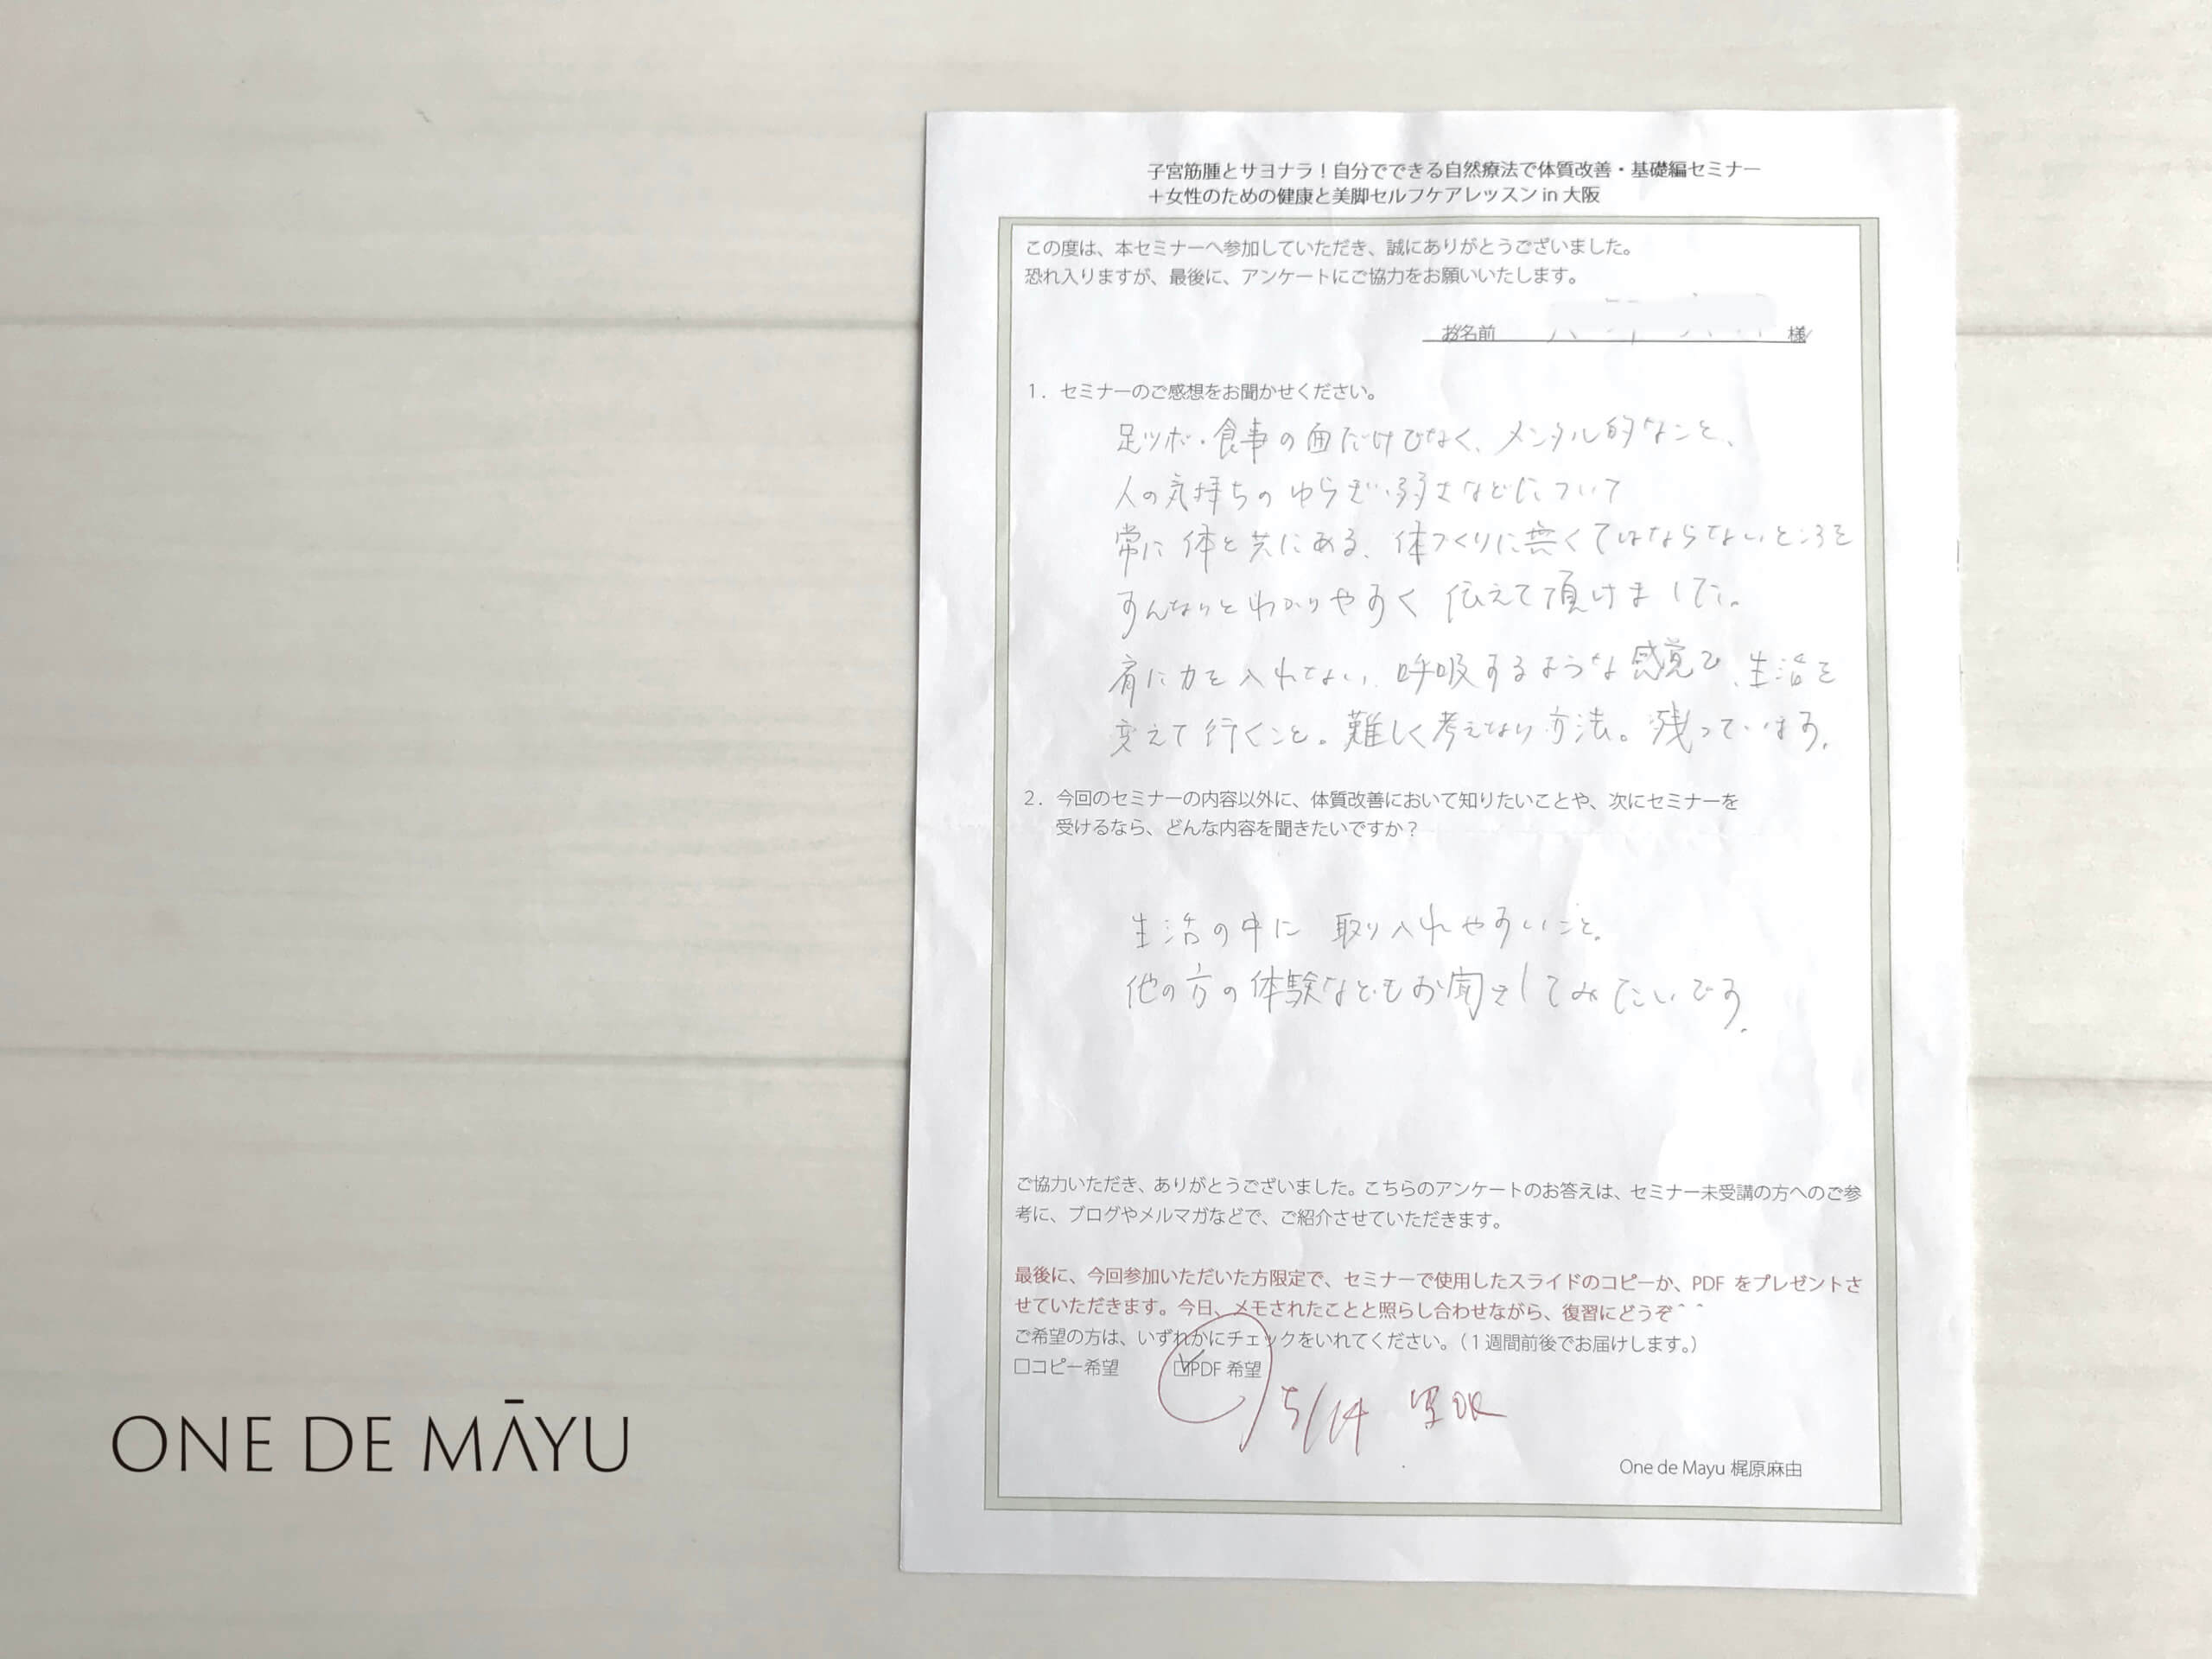 子宮筋腫とサヨナラ！自分でできる自然療法で体質改善・基礎編セミナー
＋女性のための健康と美脚セルフケアレッスン in 大阪
この度は、本セミナーへ参加していただき、誠にありがとうございました。
恐れ入りますが、最後に、アンケートにご協力をお願いいたします。
お名前 様
1．セミナーのご感想をお聞かせください。
足ツボ・食事の面だけでなく、メンタル的なこと、
人の気持ちのゆらぎ・弱さなどについて
常に体と共にある、体つくりに無くてはならないところを
すんなりとわかりやすく伝えて頂けました。
肩に力を入れない、呼吸するような感覚で、生活を
変えて行くこと。難しく考えない方法。残っています。
2．今回のセミナーの内容以外に、体質改善において知りたいことや、次にセミナーを
受けるなら、どんな内容を聞きたいですか？
生活の中に 取り入れやすいこと。
他の方の体験などもお聞きしてみたいです。
ご協力いただき、ありがとうございました。こちらのアンケートのお答えは、セミナー未受講の方へのご参
考に、ブログやメルマガなどで、ご紹介させていただきます。
最後に、今回参加いただいた方限定で、セミナーで使用したスライドのコピーか、PDF をプレゼントさ
せていただきます。今日、メモされたことと照らし合わせながら、復習にどうぞ＾＾
ご希望の方は、いずれかにチェックをいれてください。（1 週間前後でお届けします。）
□コピー希望 ☑PDF 希望
5/14 OK
One de Mayu 梶原麻由
ONE DE MĀYU